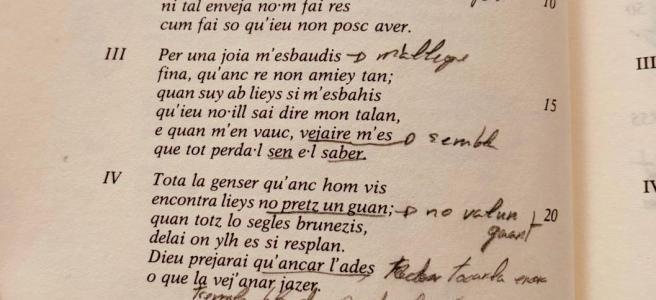 ni tal enveja no·m fai res
10
cum fai so qu'ieu non posc aver.
III
Per una joia m'esbaudis → m'allegro
fina, qu'anc re non amiey tan;
quan suy ab lieys si m'esbahis
15
qu'ieu no·ill sai dire mon talan,
e quan m'en vauc, vejaire m'es → sembla
que tot perda·l sen e·l saber.
IV
Tota la genser qu'anc hom vis
encontra lieys no pretz un guan; → no valun
20
guant
quan totz lo segles brunezis,
delai on ylh es si resplan.
Dieu prejarai qu'ancar l'ades
o que la vej'anar jazer.
III
IV